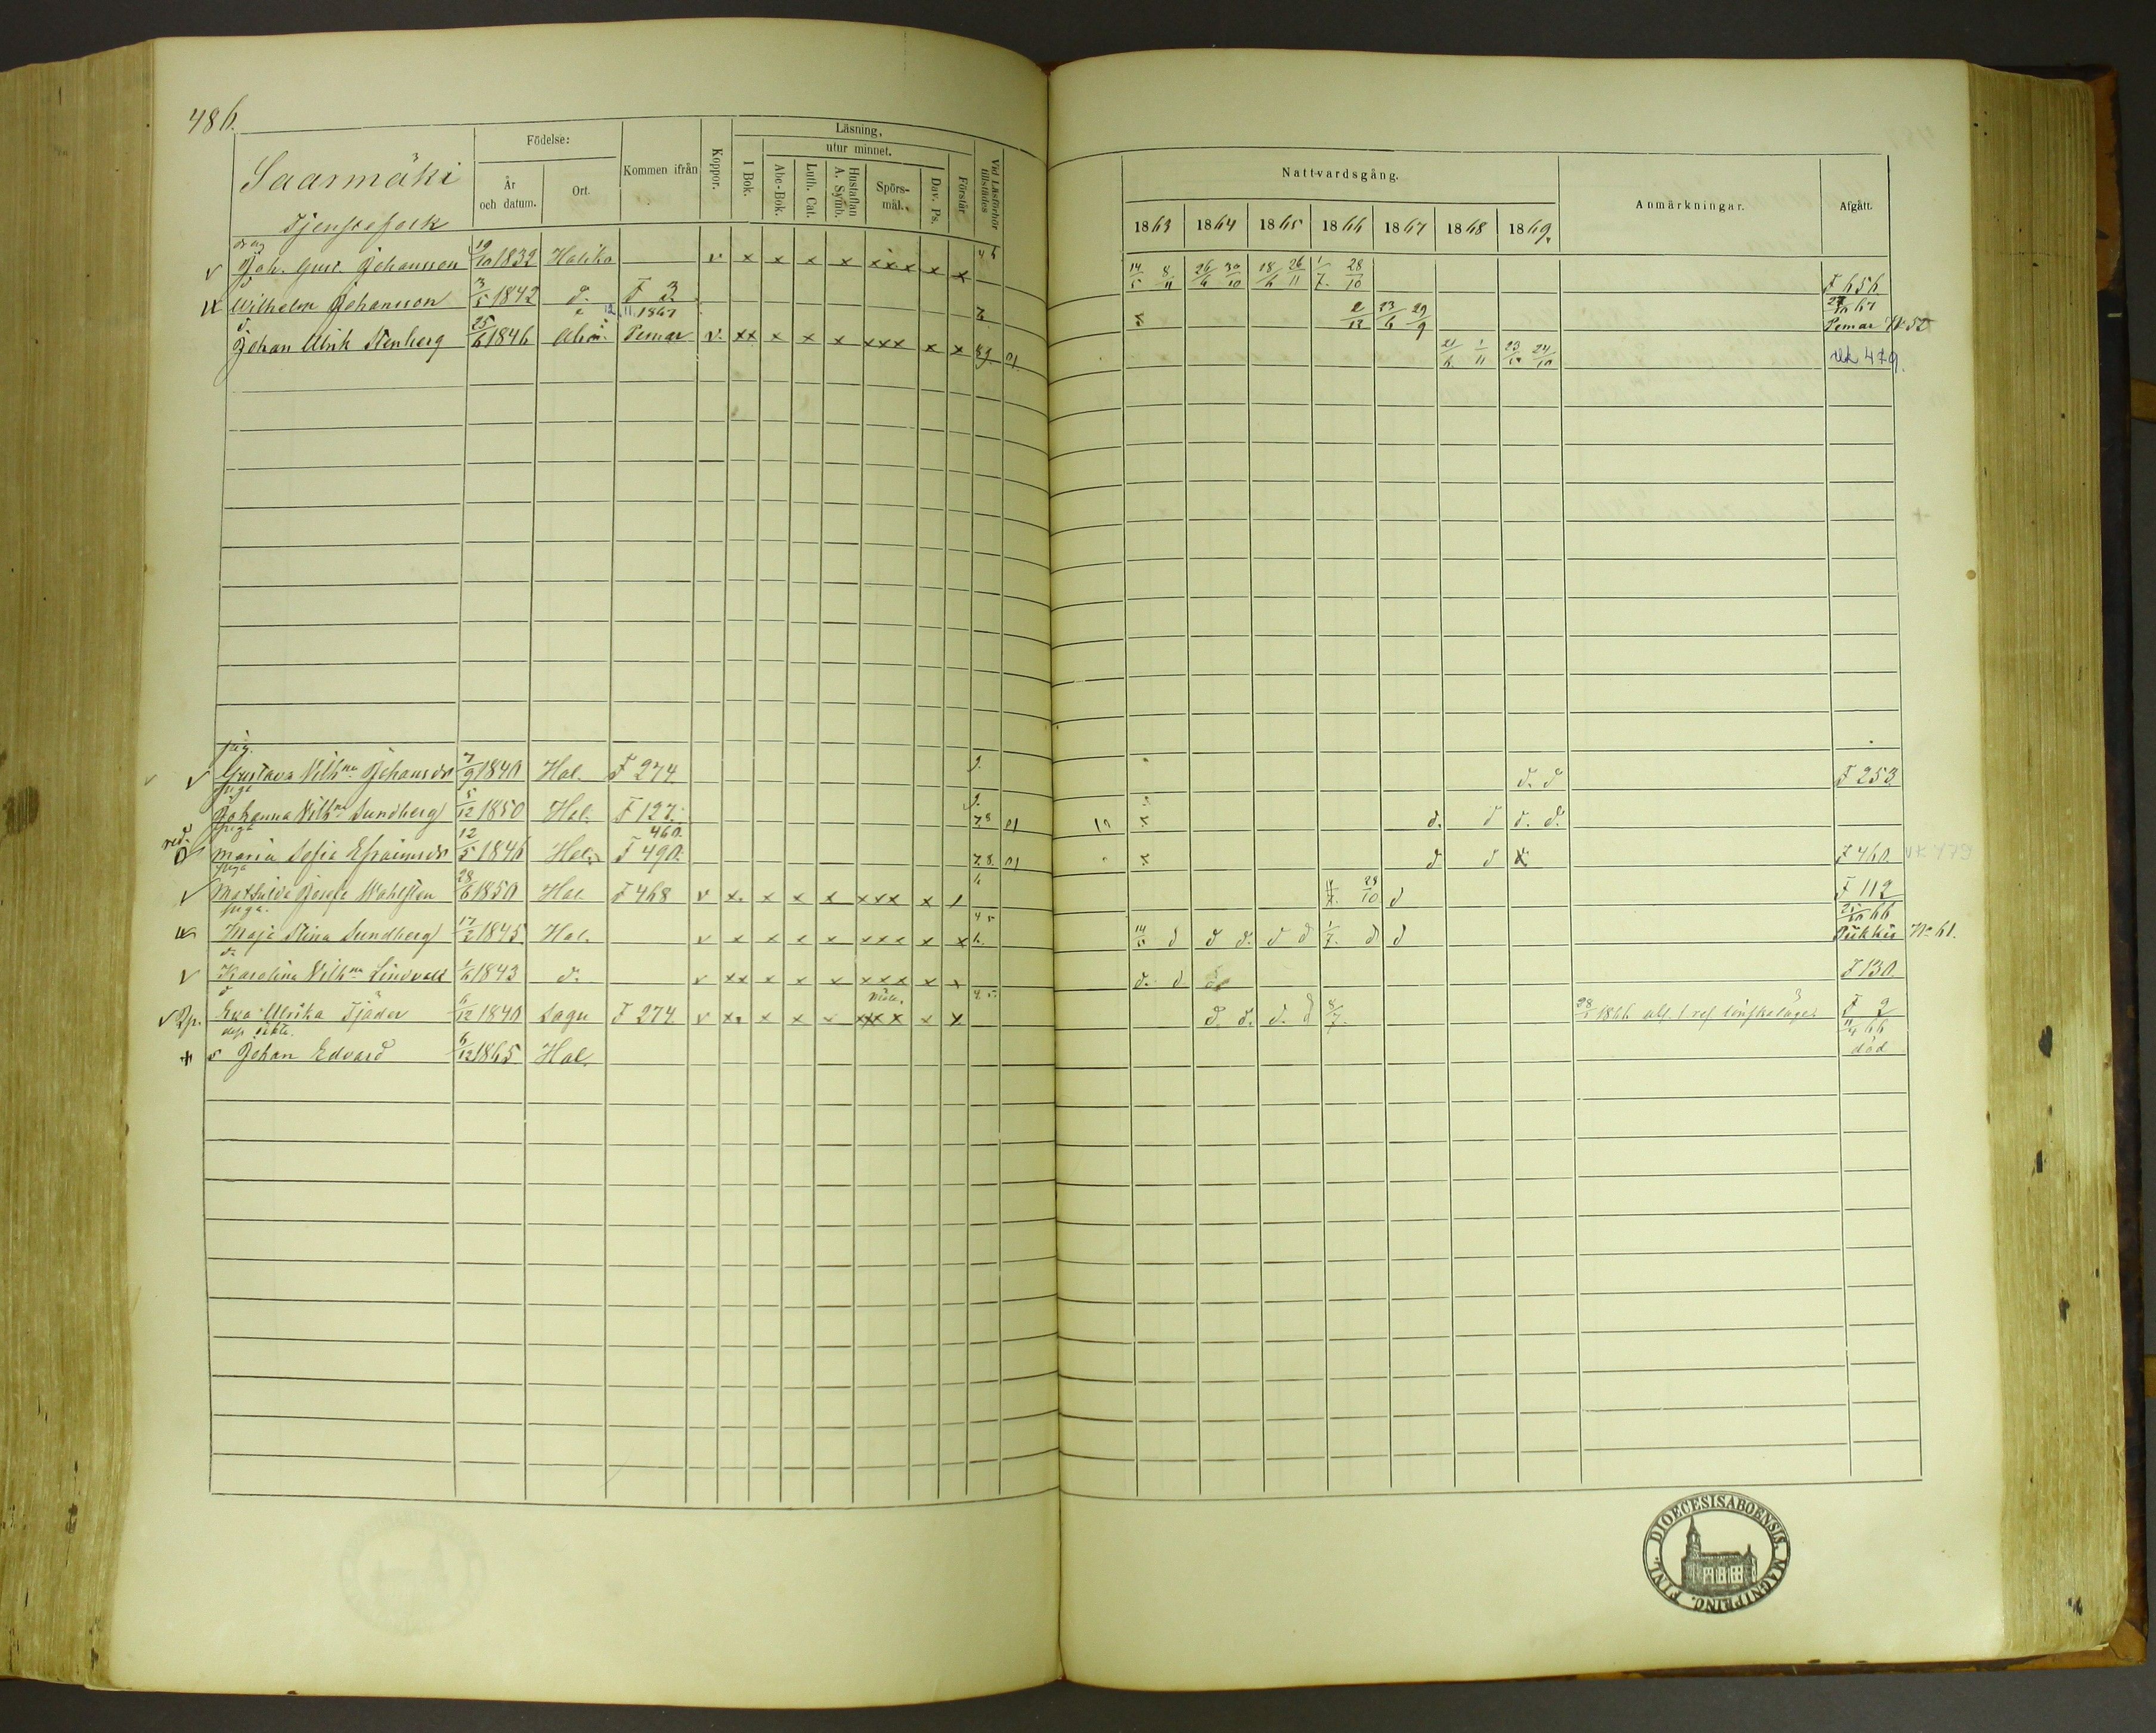 486.
Saarmäki
Tjenstefolk
Födelse:
År och datum.
Ort.
Kommen ifrån
Koppor.
Läsning,
I Bok.
utur minnet.
Abc-Bok.
Luth. Cat.
Hustaflan A. Symb.
Spörsmål.
Dav. Ps.
Förstår
Vid Läsförhör tillstädes
Nattvardsgång.
1863 1864 1865 1866 1867 1868 1869.
Anmärkningar.
Afgått.
dräng
v Joh. Gust. Johansson 19/10 1832 Haliko v x x x x xxx x x 4 5 14/5 8/11 26/6 30/10 18/6 26/11 1/7. 28/10 F 656
d
Wilhelm Johansson 3/5 1842 d. F 3. 7. 2/12 23/6 29/9 27/10 67 Pemar No 52
d. 12.11.1867
Johan Ulrik Stenberg 25/6 1846 Pemar v. xx x x x xxx x x 89. 21/6 1/11 23/10 24/10 Uk 479.
pig.
v Gustava Vilhna Johansdr 7/9 1840 Hal. F 274. 9. d. d F 253
piga
Johanna Vilhna Sundberg 5/12 1850 Hal. F 127. 7.8 d. d d. d.
piga 460.
Maria Sofia Efraimsdr 12/5 1846 Hal. F 490. 7.8. d d x F 460. UK 479
piga
v Mathilda Josefa Wahlsten 28/6 1850 Hal. F 468 v x. x x x xxx x 6 28/10 d F 112
piga.
Maja Stina Sundberg 17/2 1845 Hal. v x x x x xxx x x 4 5 6. 14/5 d d d. d d 1/7. d d 25/10 66 Pikkis No 61.
da
v Karolina Vilhna Lindvall 1/6 1843 d. v xx x x x xxx x x d. d F 130
d
v Eva Ulrika Tjäder 6/12 1840 Sagu F 274 v xx x x x xxx x x 4. 5. d. d. d. d 8/7. 1866 F 2
des oäkta.
s Johan Edvard 6/12 1865 Hal. 11/4 66 död
DIOECESIS ABOENSIS. MAGNI PRINC. FINL.